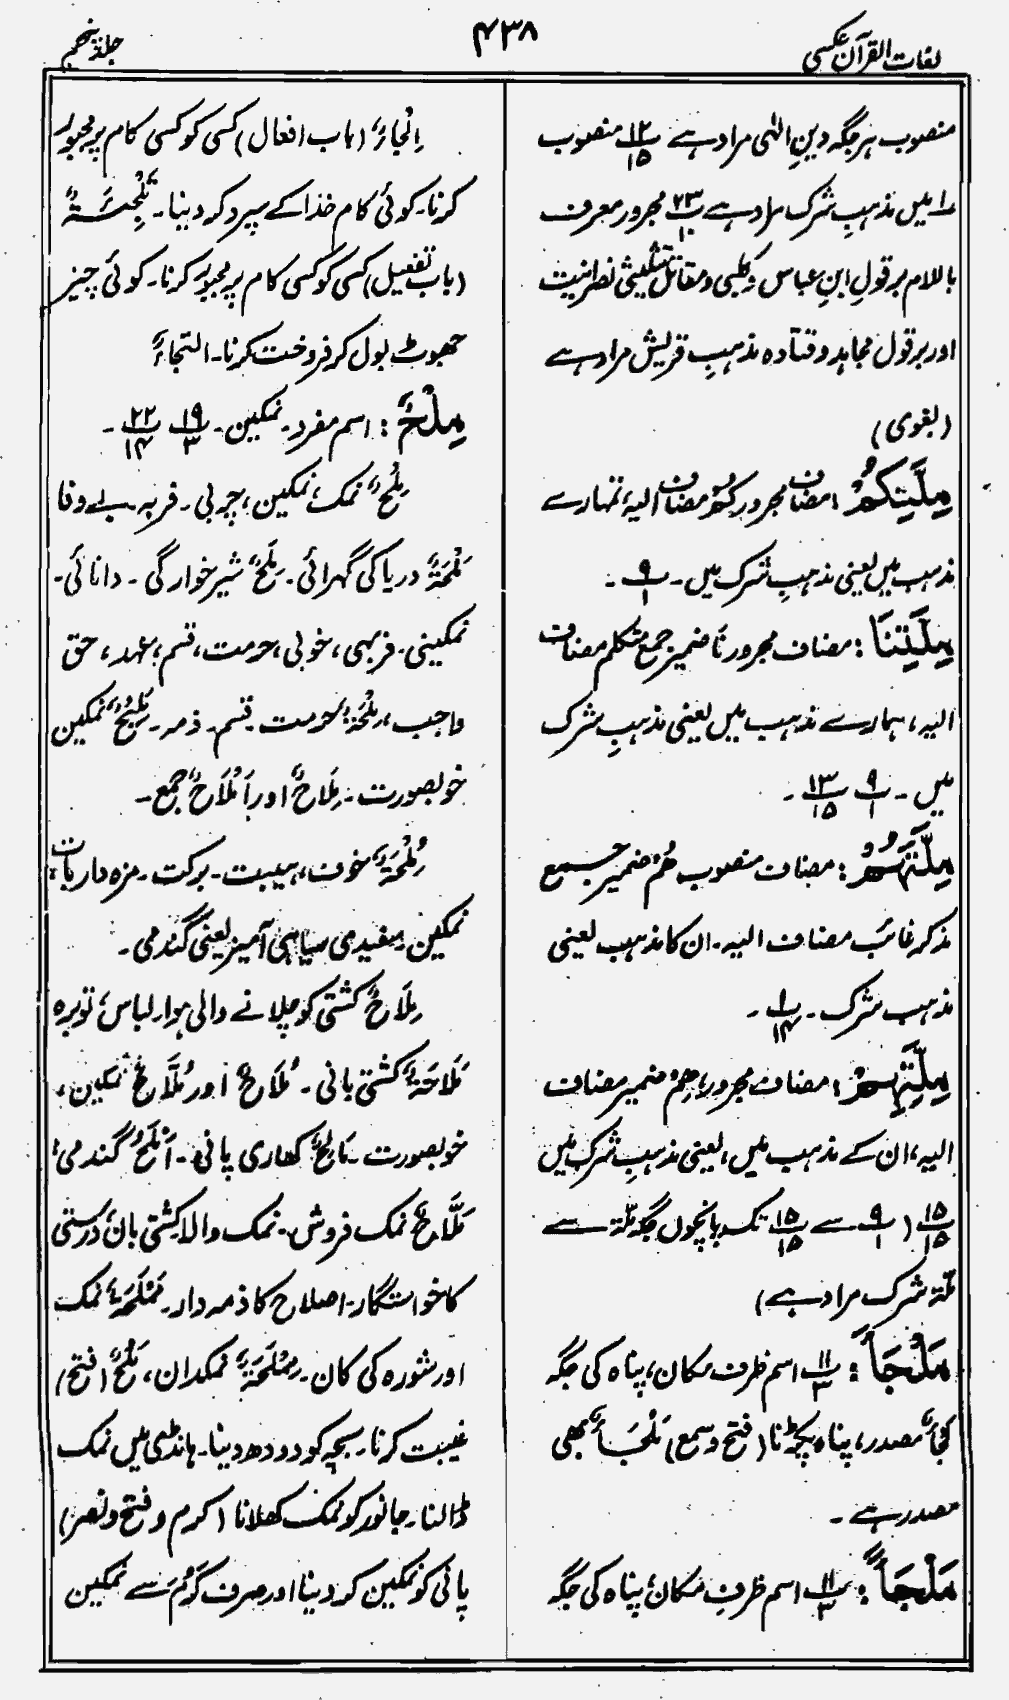 لغات القرآن عکسی
۴۳۸
جلد پنجم
منصوب ہر جگہ دینِ الٰہی مراد ہے پ ۱۲/۱۵ منصوب
میں مذہبِ شرک مراد ہے پ ۲۳/۱۰ مجرور معرف
باللام بر قولِ ابنِ عباس و کلبی و مقاتل تثلیثی نصرانیت
اور بر قول مجاہد و قتادہ مذہبِ قریش مراد ہے
(بغوی)
مِلَّتِکُمْ: مضاف مجرور کُمْ مضاف الیہ، تمہارے
مذہب میں یعنی مذہبِ شرک میں۔ پ ۹/۱ ۔
مِلَّتِنَا: مضاف مجرور نَا ضمیر جمع متکلم مضاف
الیہ، ہمارے مذہب میں یعنی مذہبِ شرک
میں۔ پ ۹/۱ پ ۱۳/۱۵ ۔
مِلَّتَهُمْ: مضاف منصوب هُمْ ضمیر جمع
مذکر غائب مضاف الیہ۔ ان کا مذہب یعنی
مذہب شرک۔ پ ۱/۱۴ ۔
مِلَّتِهِمْ: مضاف مجرور، هِمْ ضمیر مضاف
الیہ، ان کے مذہب میں، یعنی مذہبِ شرک میں
پ ۱۵/۱۵ (پ ۹/۱ سے پ ۱۵/۱۵ تک پانچوں جگہ ملّۃ سے
ملّۃ شرک مراد ہے)
مَلْجَأَ: پ ۱۱/۳ اسم ظرف مکان، پناہ کی جگہ
لَجَأٌ مصدر، پناہ پکڑنا (فتح و سمع) مَلْجَأٌ بھی
مصدر ہے۔
مَلْجَأً: پ ۱۱/۳ اسم ظرفِ مکان، پناہ کی جگہ
اِلْجَاءٌ (باب افعال) کسی کو کسی کام پر مجبور
کرنا۔ کوئی کام خدا کے سپرد کر دینا۔ تَلْجِئَۃٌ
(باب تفعیل) کسی کو کسی کام پر مجبور کرنا۔ کوئی چیز
جھوٹ بول کر فروخت کرنا۔ التجاءٌ
مِلْحٌ: اسم مفرد۔ نمکین۔ پ ۱۹/۳ پ ۲۲/۱۴ ۔
مِلْحٌ نمک، نمکین، چربی۔ فربہ بے وفا
مَلْحَۃٌ دریا کی گہرائی۔ مَلْحٌ شیر خوارگی۔ دانائی۔
نمکینی۔ فربہی، خوبی، حرمت، قسم، عہد، حق
واجب، مِلْحَۃٌ حرمت۔ قسم۔ ذمہ۔ مَلِیْحٌ نمکین
خوبصورت۔ مِلَاحٌ اور اَمْلَاحٌ جمع۔
مُلْحَۃٌ خوف، ہیبت۔ برکت۔ مزہ دار بات
نمکین۔ سفیدی سیاہی آمیز یعنی گندمی۔
مِلَاحٌ کشتی کو چلانے والی ہوا۔ لباس، توبرہ
مَلَاحَۃٌ کشتی بانی۔ مُلَاحٌ اور مُلَّاحٌ نمکین،
خوبصورت۔ مَالِحٌ کھاری پانی۔ اَمْلَحُ گندمی،
مَلَّاحٌ نمک فروش۔ نمک والا کشتی بان، درستی
کا خواستگار۔ اصلاح کا ذمہ دار۔ مَمْلَحَۃٌ نمک
اور شورہ کی کان۔ مِمْلَحَۃٌ نمکدان، مَلْحٌ (فتح)
غیبت کرنا۔ بچہ کو دودھ دینا۔ ہانڈی میں نمک
ڈالنا۔ جانور کو نمک کھلانا (کرم و فتح و نصر)
پانی کو نمکین کر دینا اور صرف کَرُمَ سے نمکین